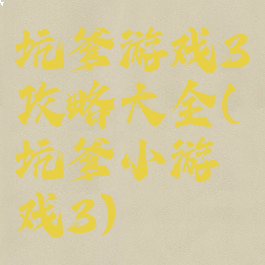 坑爹游戏3
攻略大全(
坑爹小游
戏3)